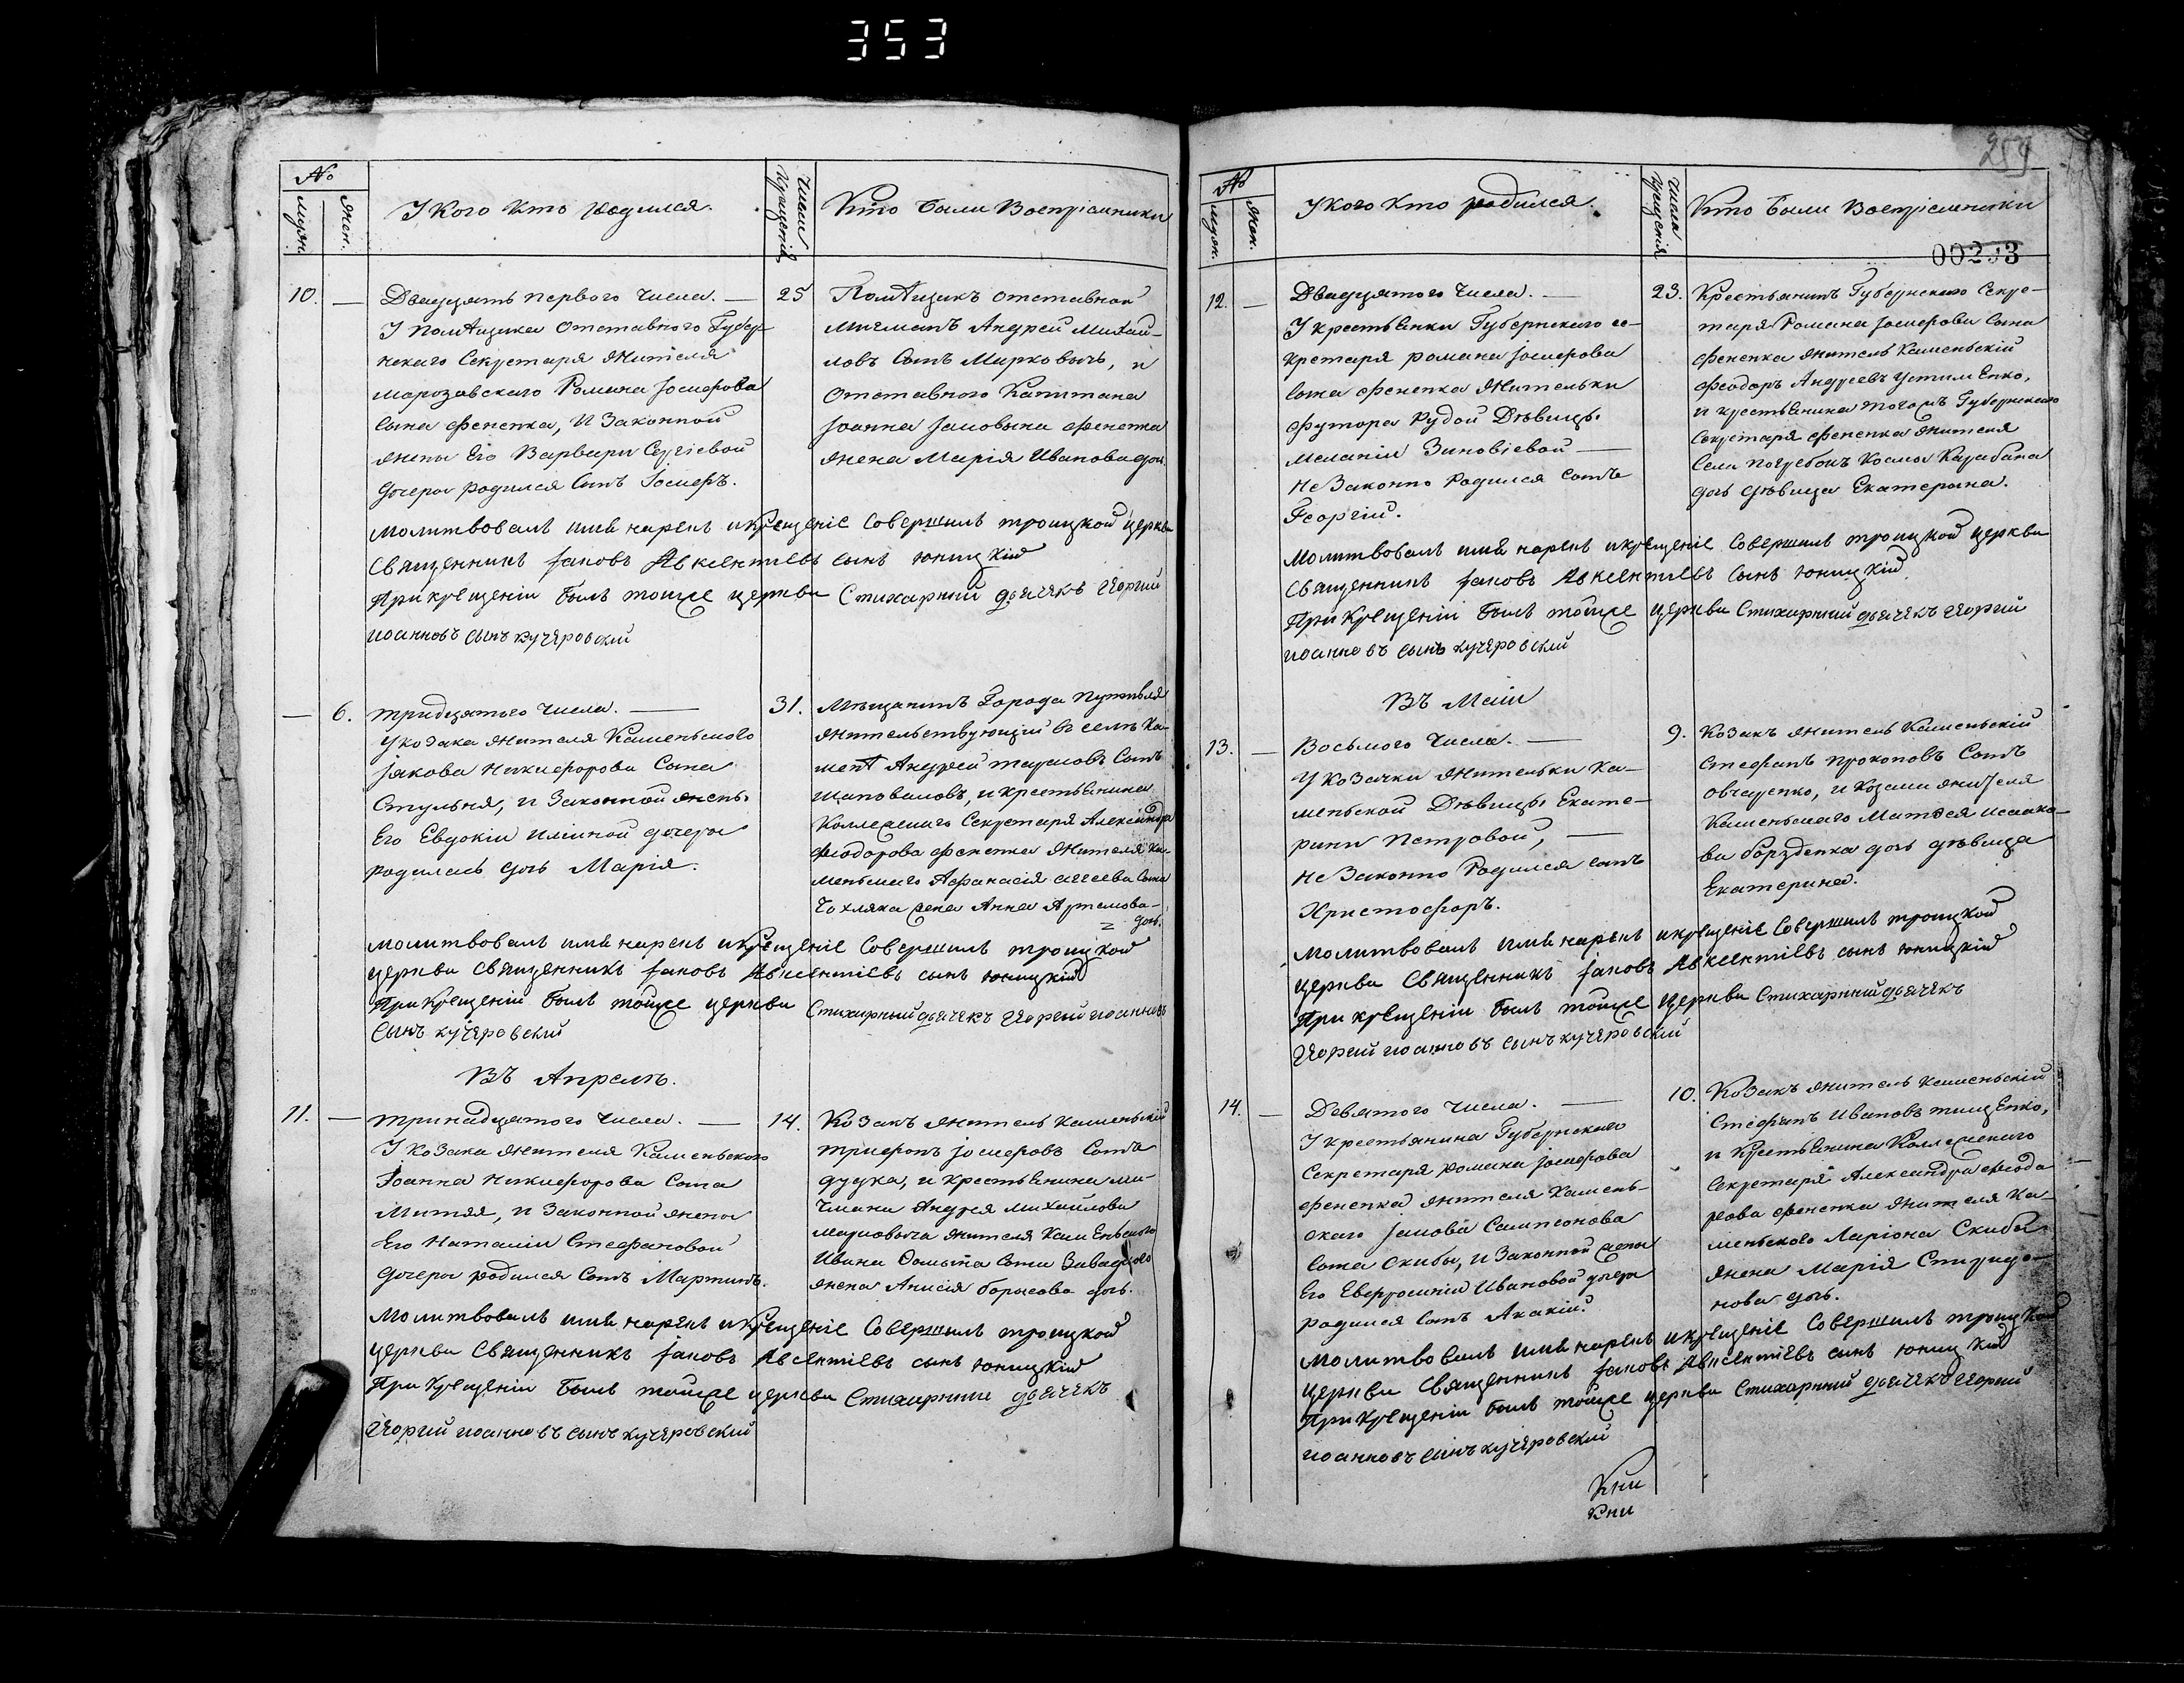 353
№
мужеск.
женс.
У Кого Кто родился.
Число Крещенія
Кто были Воспріемники
10. — Двадцять перваго числа. —
У помѣщика отставного Губер-
нскаго Секретаря жителя
морозовскаго Романа Іосифова
сына Фененка, и законной
жены его Варвары Сергіевой
дочери родился сынъ Іосифъ.
25
Помѣщикъ отставной
мичманъ Андрей Михай-
ловъ сынъ Марковичъ, и
отставного Капитана
Іоанна Іаковына Фененка
жена Марія Иванова дочь.
Молитвовалъ имя нарекъ и крещеніе совершилъ троицкой церкви
священникъ Іаковъ Авксентіевъ сынъ Юницкій
При крещеніи былъ тойже церкви Стихарный дьячекъ Георгий
иоанновъ сынъ кучеровский
— 6. тридцятого числа. —
У козака жителя Каменьского
Іякова Никифорова сына
Стульня, и законной жены
его Евдокіи Иліиной дочери
родилась дочь Марія.
31.
Мѣщанинъ Города Путивля
жительствующій в селѣ Ка-
менѣ Андрей тарасовъ сынъ
Шаповаловъ, и крестьянина
Коллежскаго Секретаря Александра
Феодорова Фененка жителя Ка-
меньскаго Афанасія сына
Чохляка жена Анна Артемова
дочь.
молитвовалъ имя нарекъ и крещеніе совершилъ троицкой
церкви священникъ Іаковъ Авксентіевъ сынъ Юницкій
При крещеніи былъ тойже церкви Стихарный дьячекъ Георгий иоанновъ
сынъ кучеровский
Въ Апрелѣ.
11. — тринадцятого числа. —
У козака жителя Каменьского
Іоанна Никифорова сына
Митяя, и законной жены
его Наталіи Стефановой
дочери родился сынъ Мартинъ.
14.
Козакъ житель Каменьскій
трифонъ Іосифовъ сынъ
дудка, и крестьянина ми-
чмана Андрея Михайлова
марковича жителя Каменьского
Ивана сына Завадского
жена Анисія борисова дочь.
Молитвовалъ имя нарекъ и крещеніе совершилъ троицкой
церкви священникъ Іаковъ Авксентіевъ сынъ Юницкій
При крещеніи былъ тойже церкви Стихарный дьячекъ
Георгий иоанновъ сынъ кучеровский
259
№
мужеск.
женс.
У кого кто родился.
Число Крещенія
Кто были Воспріемники
00213
12. — Двадцятого числа. —
У крестьянки Губернскаго се-
кретаря романа Іосифова
сына Фененка жительки
футора Рудой Дѣвицы
Меланіи Зиновіевой —
незаконно родился сынъ
Георгій.
23.
Крестьянинъ Губернскаго Секре-
таря Романа Іосифова сына
Фененка житель Каменьскій
Феодоръ Андреевъ Устименко,
и крестьянина тогожъ Губернскаго
Секретаря Фененка жителя
села погребокъ Космы Карабана
дочь дѣвица Екатерина.
Молитвовалъ имя нарекъ и крещеніе совершилъ троицкой церкви
священникъ Іаковъ Авксентіевъ сынъ Юницкій.
При крещеніи былъ тойже церкви Стихарный дьячекъ Георгий
иоанновъ сынъ кучеровский
Въ Маіи
13. — Восьмого числа. —
У козачки жительки Ка-
меньской Дѣвицы Екате-
рины Петровой, —
незаконно родился сынъ
Христофоръ.
9.
Козакъ житель Каменьскій
Стефанъ прокоповъ сынъ
Овчаренко, и козака жителя
Каменьскаго Матвея исаако-
ва борзденка дочь дѣвица
Екатерина.
Молитвовалъ имя нарекъ и крещеніе совершилъ троицкой
церкви Священникъ Іаковъ Авксентіевъ сынъ Юницкій
При крещеніи былъ тойже церкви Стихарный дьячекъ
Георгий иоанновъ сынъ кучеровский
14. — Девятого числа. —
У крестьянина Губернскаго
Секретаря романа Іосифова
Фененка жителя Камень-
скаго Іакова Сампсонова
сына Скибы, и законной жены
его Евфросиніи Ивановой дочери
родился сынъ Акакій.
10.
Козакъ житель Каменьскій
Стефанъ Ивановъ тищенко,
и крестьянина Коллежскаго
Секретаря Александра Феодо-
рова Фененка жителя Ка-
меньского Ларіона Скибы
жена Марія Спиридо-
нова дочь.
Молитвовалъ имя нарекъ и крещеніе совершилъ троицкой
церкви священникъ Іаковъ Авксентіевъ сынъ Юницкій
При крещеніи былъ тойже церкви Стихарный дьячекъ Георгий
иоанновъ сынъ кучеровский
Кни
Кни